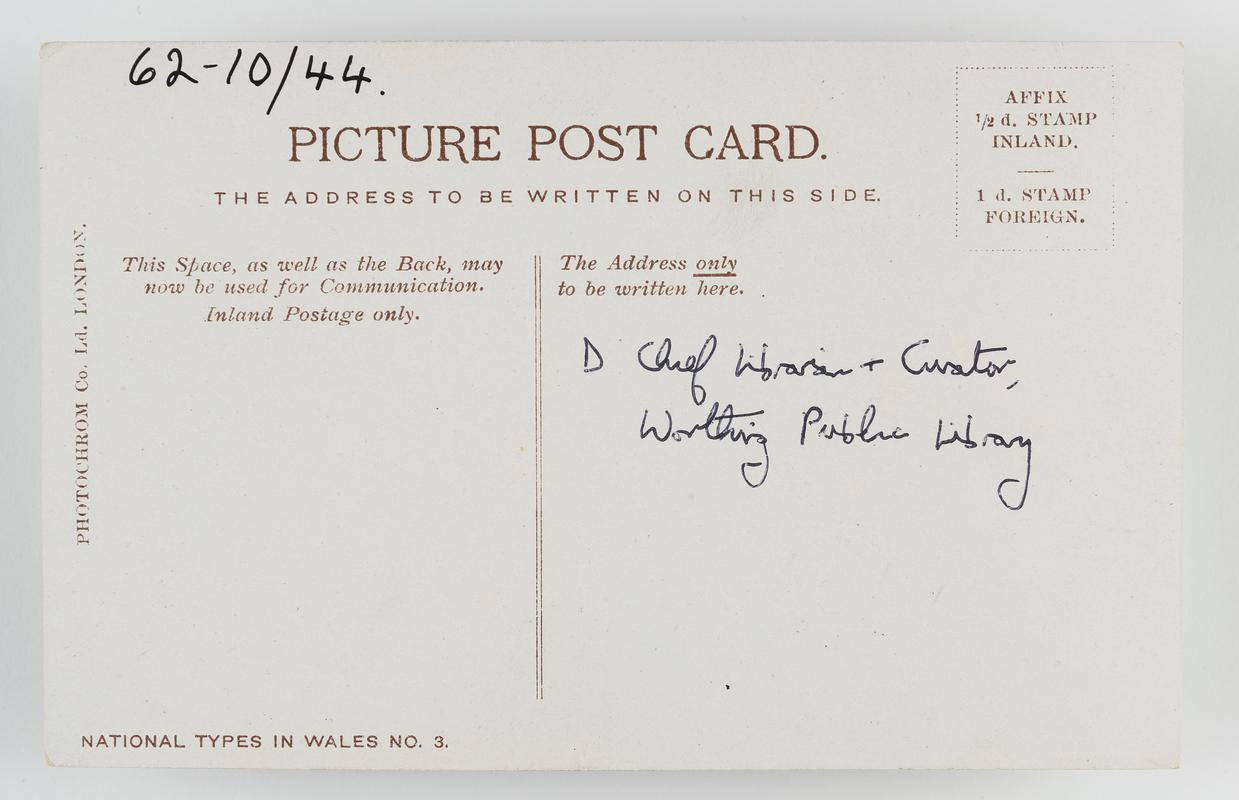 62-10/44.
PICTURE POST CARD.
THE ADDRESS TO BE WRITTEN ON THIS SIDE.
AFFIX
1/2 d. STAMP
INLAND.
1 d. STAMP
FOREIGN.
PHOTOCHROM Co. Ld. LONDON.
This Space, as well as the Back, may
now be used for Communication.
Inland Postage only.
The Address only
to be written here.
D Chief Librarian + Curator,
Worthing Public Library
NATIONAL TYPES IN WALES NO. 3.